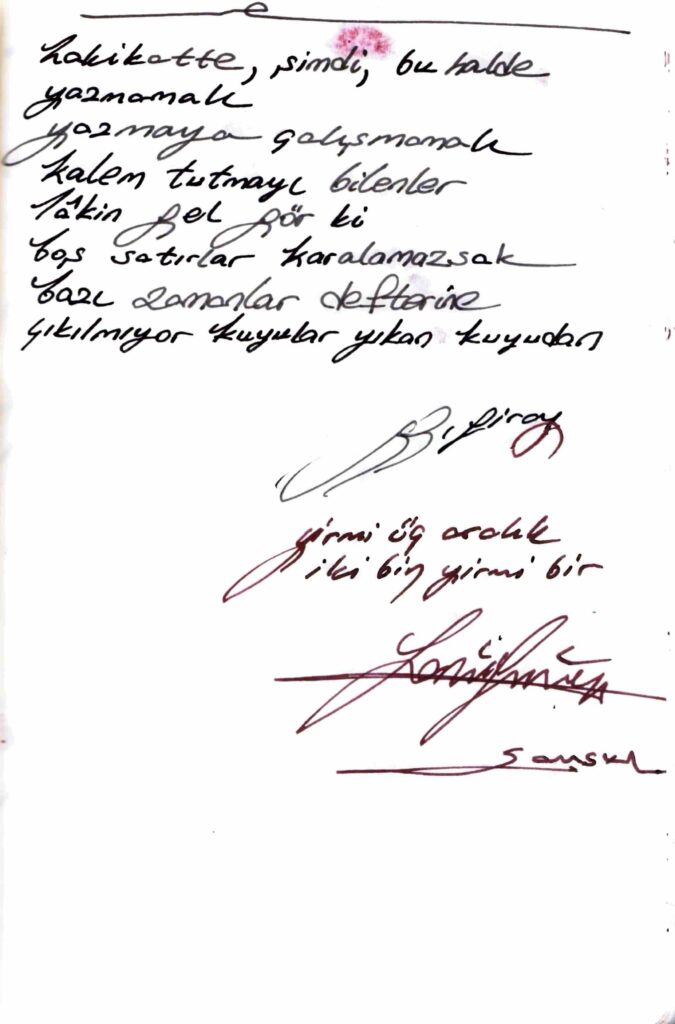 hakikatte, şimdi, bu halde
yazmamak
yazmaya çalışmamak
kalem tutmayı bilenler
lâkin gel gör ki
boş satırlar karalamazsak
bazı zamanlar defterine
çıkılmıyor kuyular yıkan kuyudan
yirmi üç aralık
iki bin yirmi bir